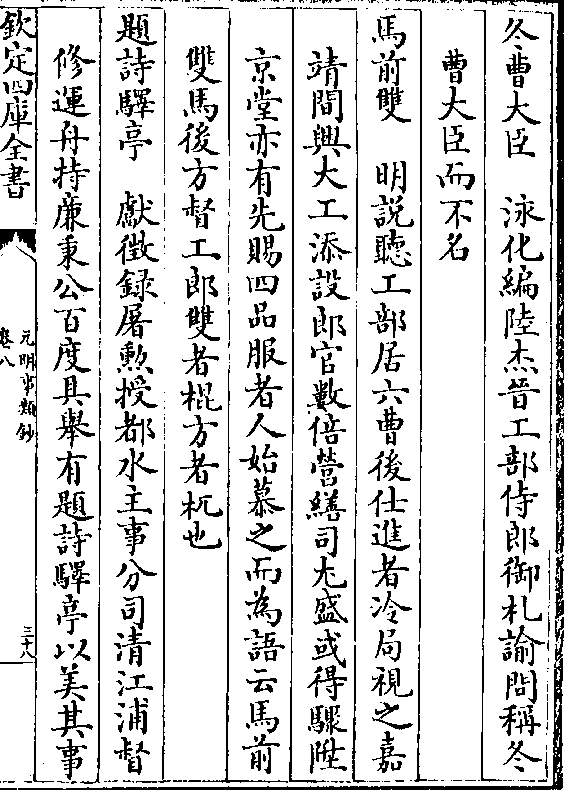 冬曹大臣　泳化編陸杰晉工部侍郎御札諭問稱冬
曹大臣而不名
馬前雙　明説聽工部居六曹後仕進者冷局視之嘉
靖間興大工添設郎官數倍營繕司尤盛或得驟陞
京堂亦有先賜四品服者人始慕之而為語云馬前
雙馬後方督工郎雙者棍方者杌也
題詩驛亭　獻徴録屠勲授都水主事分司清江浦督
修運舟持廉秉公百度具舉有題詩驛亭以美其事
欽定四庫全書
元明事類鈔
卷八
三十八